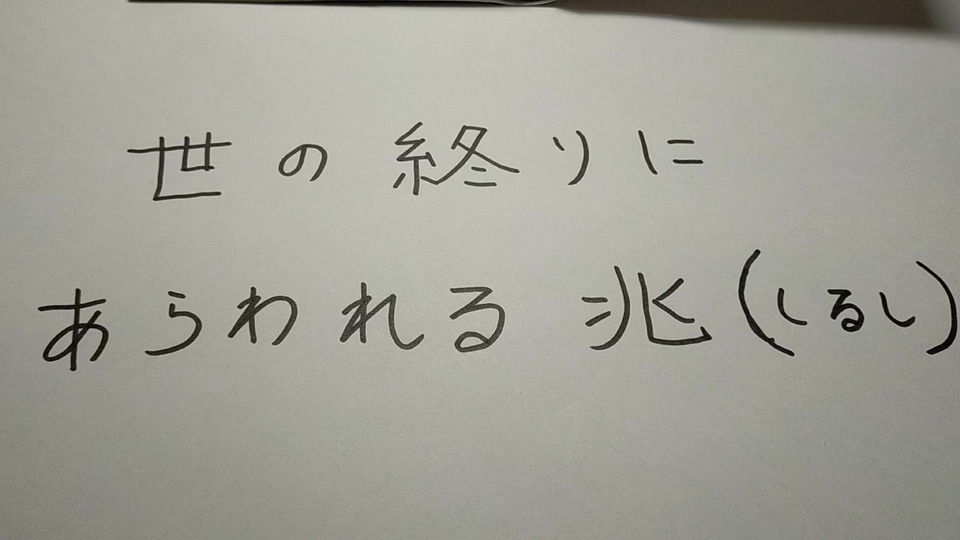 世の終りに
あらわれる兆(しるし)